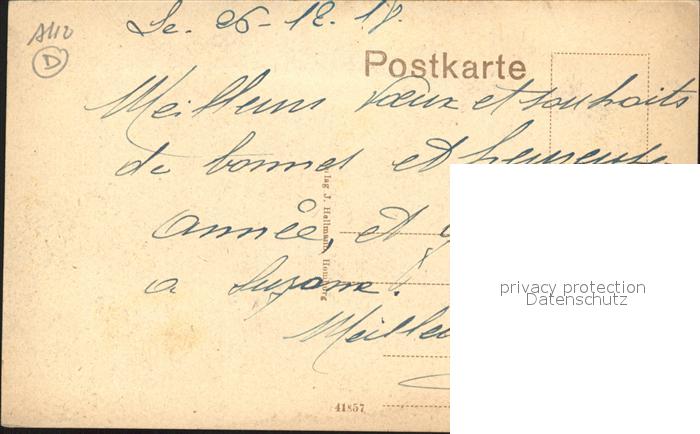 Le 26-12-18.
A112
D
Postkarte
Meilleurs voeux et souhaits
de bonnes et heureuse
année, et
a Suzanne.
Meilleu
lag J. Hellmann, Homburg
41857
privacy protection
Datenschutz